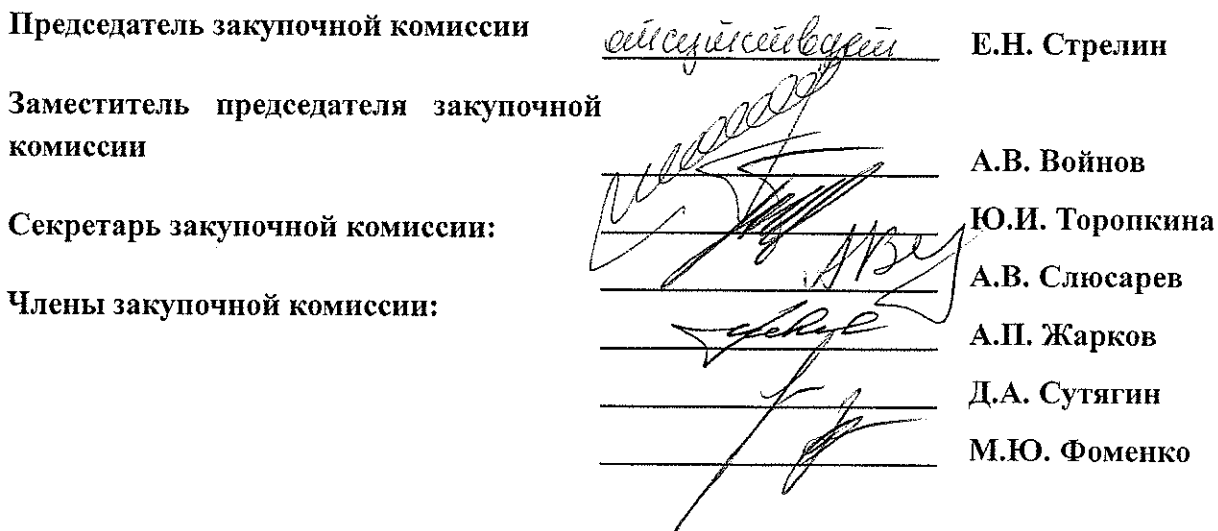 Председатель закупочной комиссии отсутствует Е.Н. Стрелин
Заместитель председателя закупочной
комиссии А.В. Войнов
Секретарь закупочной комиссии: Ю.И. Торопкина
А.В. Слюсарев
Члены закупочной комиссии:
А.П. Жарков
Д.А. Сутягин
М.Ю. Фоменко